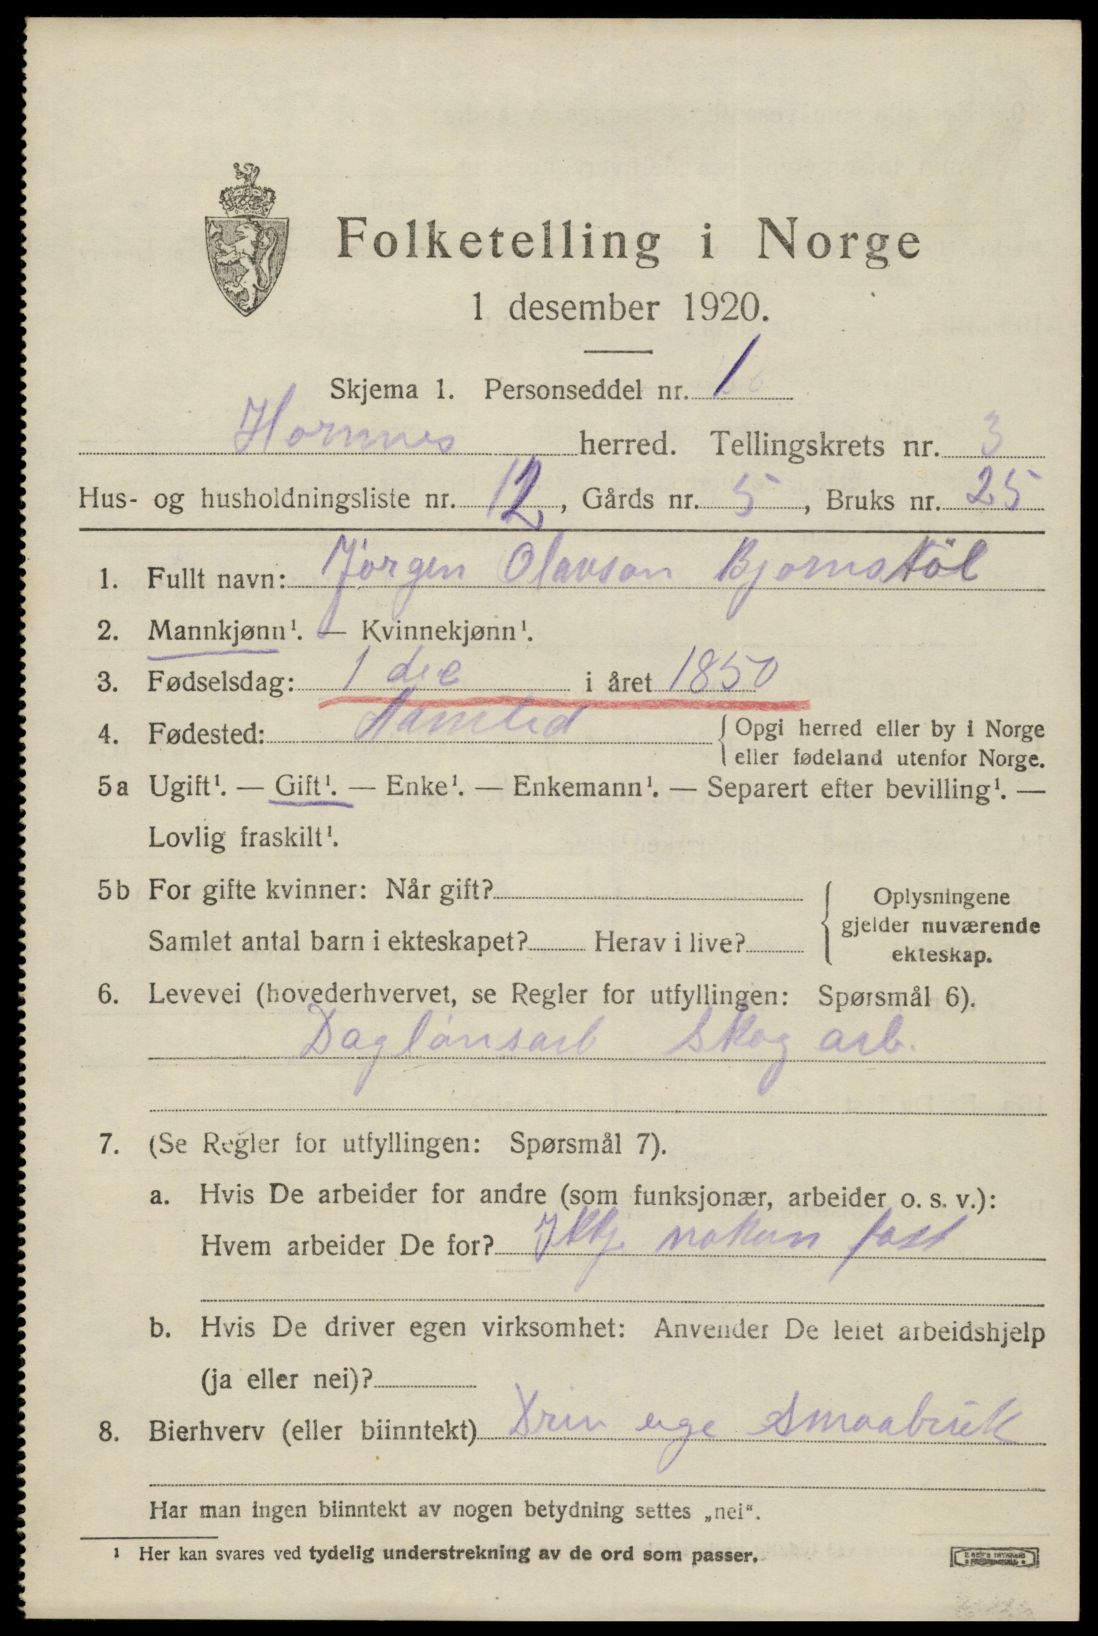 Folketelling i Norge
1 desember 1920.
Skjema 1. Personseddel nr. 1
Hornnes herred. Tellingskrets nr. 3
Hus- og husholdningsliste nr. 12, Gårds nr. 5, Bruks nr. 25
1. Fullt navn: Jørgen Olavson Bjornstöl
2. Mannkjønn¹. — Kvinnekjønn¹.
3. Fødselsdag: 1 des i året 1850
4. Fødested: { Opgi herred eller by i Norge
eller fødeland utenfor Norge.
5a Ugift¹. — Gift¹. — Enke¹. — Enkemann¹. — Separert efter bevilling¹. —
Lovlig fraskilt¹.
5b For gifte kvinner: Når gift?
Samlet antal barn i ekteskapet? Herav i live?
{ Oplysningene
gjelder nuværende
ekteskap.
6. Levevei (hovederhvervet, se Regler for utfyllingen: Spørsmål 6).
Daglønsarb Skog arb.
7. (Se Regler for utfyllingen: Spørsmål 7).
a. Hvis De arbeider for andre (som funksjonær, arbeider o. s. v.):
Hvem arbeider De for? Ikkj nokun fast
b. Hvis De driver egen virksomhet: Anvender De leiet arbeidshjelp
(ja eller nei)?
8. Bierhverv (eller biinntekt) Driv eige Smaabruk
Har man ingen biinntekt av nogen betydning settes „nei“.
¹ Her kan svares ved tydelig understrekning av de ord som passer.